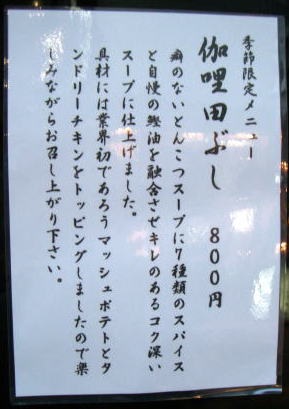 季節限定メニュー
伽哩田ぶし　８００円
癖のないとんこつスープに７種類のスパイス
と自慢の鰹油を融合させキレのあるコク深い
スープに仕上げました。
具材には業界初であろうマッシュポテトとタ
ンドリーチキンをトッピングしましたので楽
しみながらお召し上がり下さい。